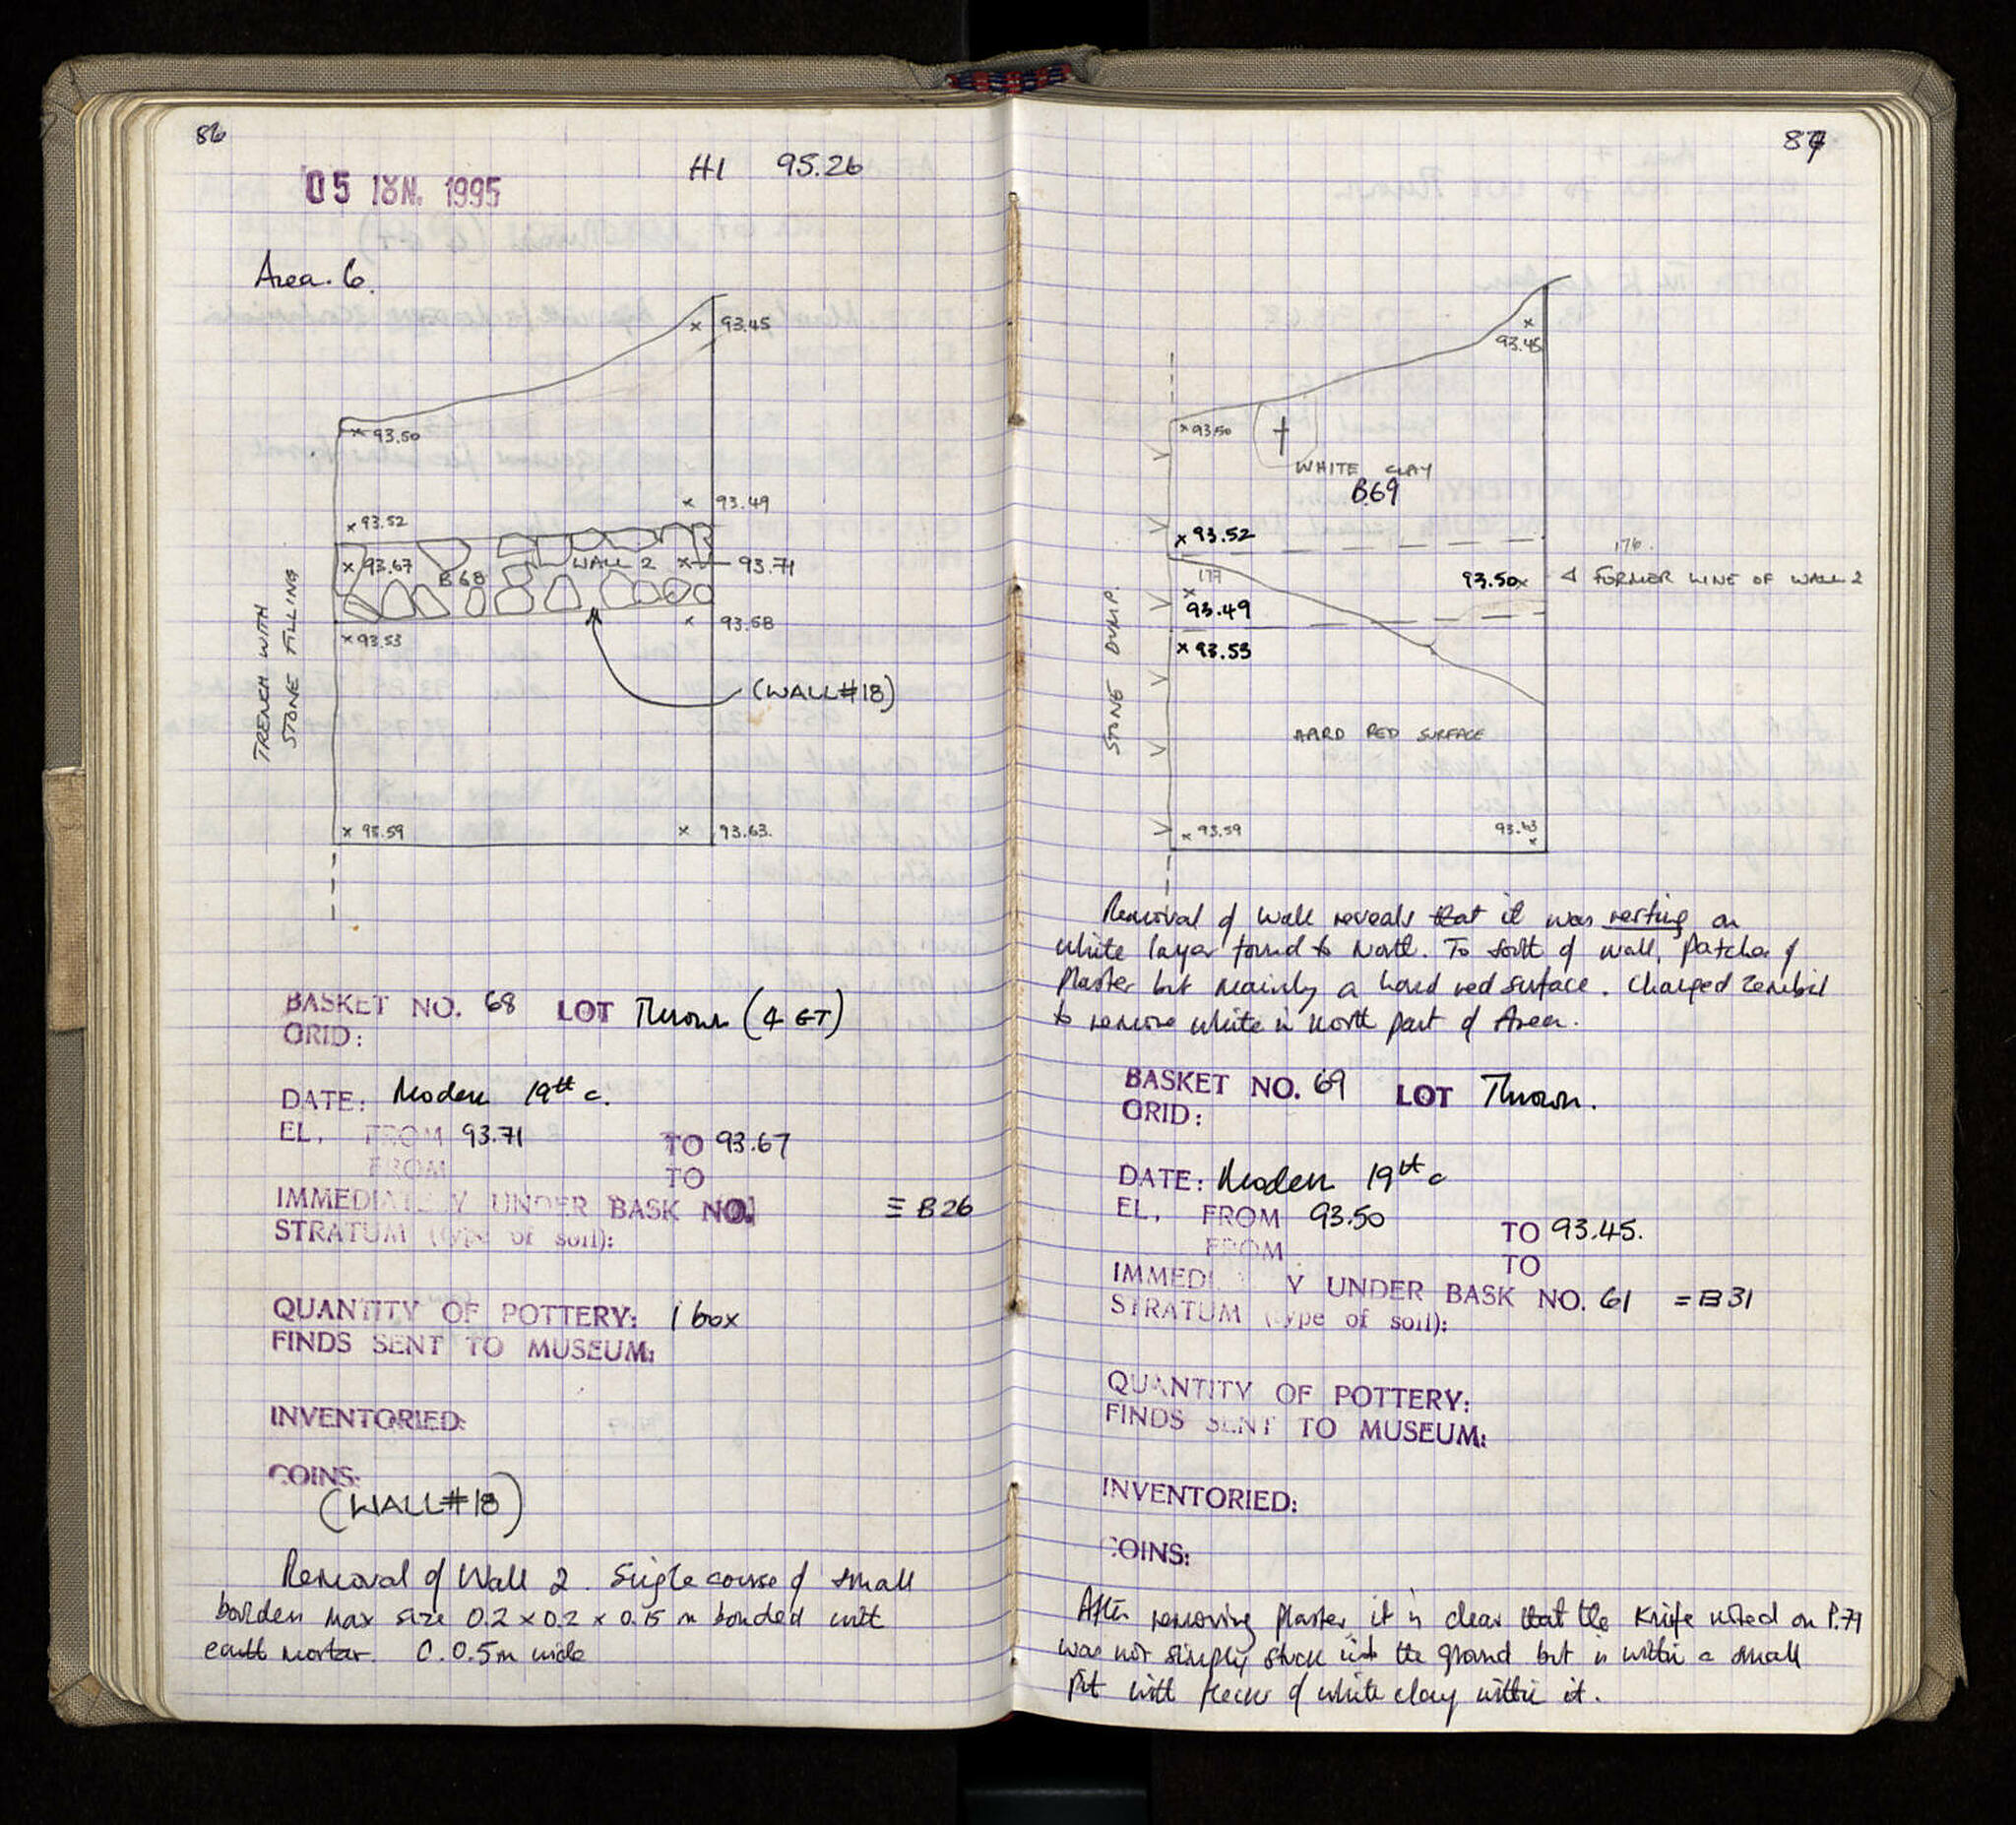 86
05 IUN. 1995
HI 95.26
Area. 6.
× 93.45
× 93.50
× 93.49
× 93.52
× 93.67
B68
WALL 2
× 93.71
× 93.53
× 93.68
TRENCH WITH
STONE FILLING
(WALL#18)
× 93.59
× 93.63.
BASKET NO. 68 LOT Thrown (4 GT)
GRID:
DATE: Modern 19th c.
EL. FROM 93.71 TO 93.67
FROM TO
IMMEDIATELY UNDER BASK NO. ≡ B26
STRATUM (type of soil):
QUANTITY OF POTTERY: 1 box
FINDS SENT TO MUSEUM:
INVENTORIED:
COINS:
(WALL#18)
Removal of Wall 2. Single course of small
boulders max size 0.2 × 0.2 × 0.15 m bonded with
earth mortar. C. 0.5m wide
87
× 93.45
× 93.50
WHITE CLAY
B69
× 93.52
176.
93.50×
FORMER LINE OF WALL 2
177
×
93.49
× 93.53
STONE DUMP.
HARD RED SURFACE
× 93.59
93.63
×
Removal of wall reveals that it was resting on
white layer found to North. To south of wall, patches of
plaster but mainly a hard red surface. Changed zembil
to remove white in north part of Area.
BASKET NO. 69 LOT Thrown.
GRID:
DATE: Modern 19th c
EL. FROM 93.50 TO 93.45.
FROM TO
IMMEDI Y UNDER BASK NO. 61 = B31
STRATUM (type of soil):
QUANTITY OF POTTERY:
FINDS SENT TO MUSEUM:
INVENTORIED:
COINS:
After removing plaster, it is clear that the Knife noted on P.79
was not simply stuck into the ground but is within a small
pit with flecks of white clay within it.